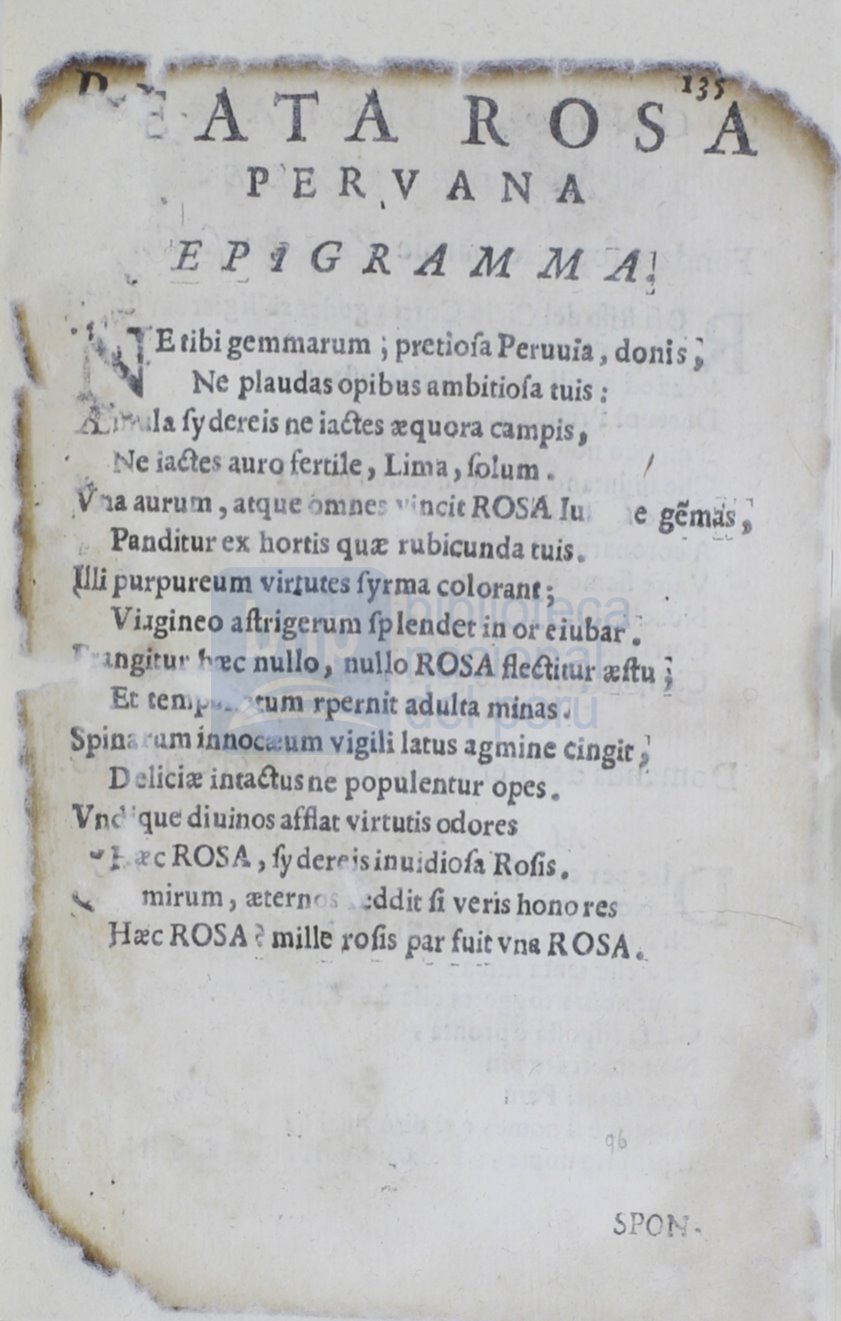 135
BEATA ROSA
PERVANA
EPIGRAMMA.
NE tibi gemmarum ; pretioſa Peruuia, donis ;
Ne plaudas opibus ambitioſa tuis :
ſydereis ne iactes æquora campis,
Ne iactes auro fertile, Lima, ſolum.
Vna aurum, atque omnes vincit ROSA e gẽmas,
Panditur ex hortis quæ rubicunda tuis.
Illi purpureum virtutes ſyrma colorant ;
Viıgineo aſtrigerum ſplendet in or eiubar.
Frangitur hæc nullo, nullo ROSA flectitur æſtu ;
Et rpernit adulta minas.
Spinarum innocuum vigili latus agmine cingit ;
Deliciæ intactus ne populentur opes.
Vndique diuinos afflat virtutis odores
Hæc ROSA, ſydereis inuidioſa Roſis.
mirum, æternos reddit ſi veris honores
Hæc ROSA ? mille roſis par fuit vna ROSA.
96
SPON-
biblioteca
nacional
del perú